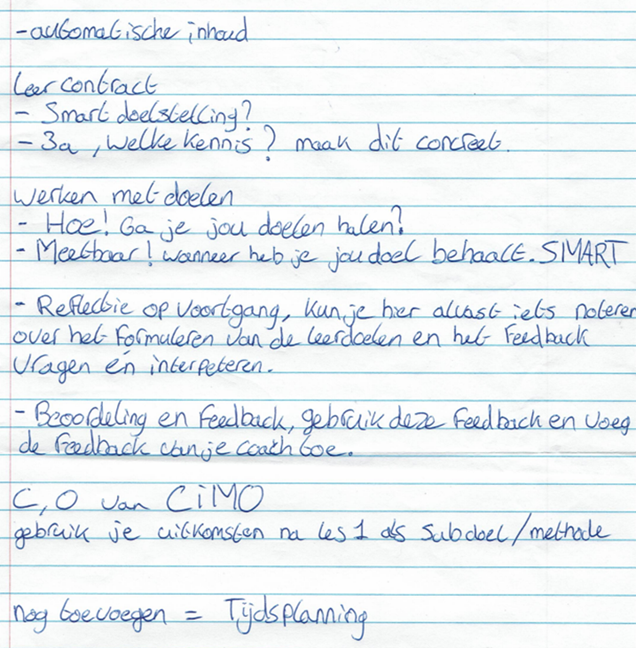 -automatische inhoud
Leer contract
- Smart doelstelling?
- 3a, welke kennis? maak dit concreet.
werken met doelen
- Hoe! Ga je jou doelen halen?
- Meetbaar! wanneer heb je jou doel behaalt. SMART
- Reflectie op voortgang, kun je hier alvast iets noteren
over het formuleren van de leerdoelen en het feedback
vragen én interpeteren.
- Beoordeling en feedback, gebruik deze feedback en voeg
de feedback van je coach toe.
C, O van CiMO
gebruik je uitkomsten na les 1 als subdoel/methode
nog toevoegen = Tijdsplanning